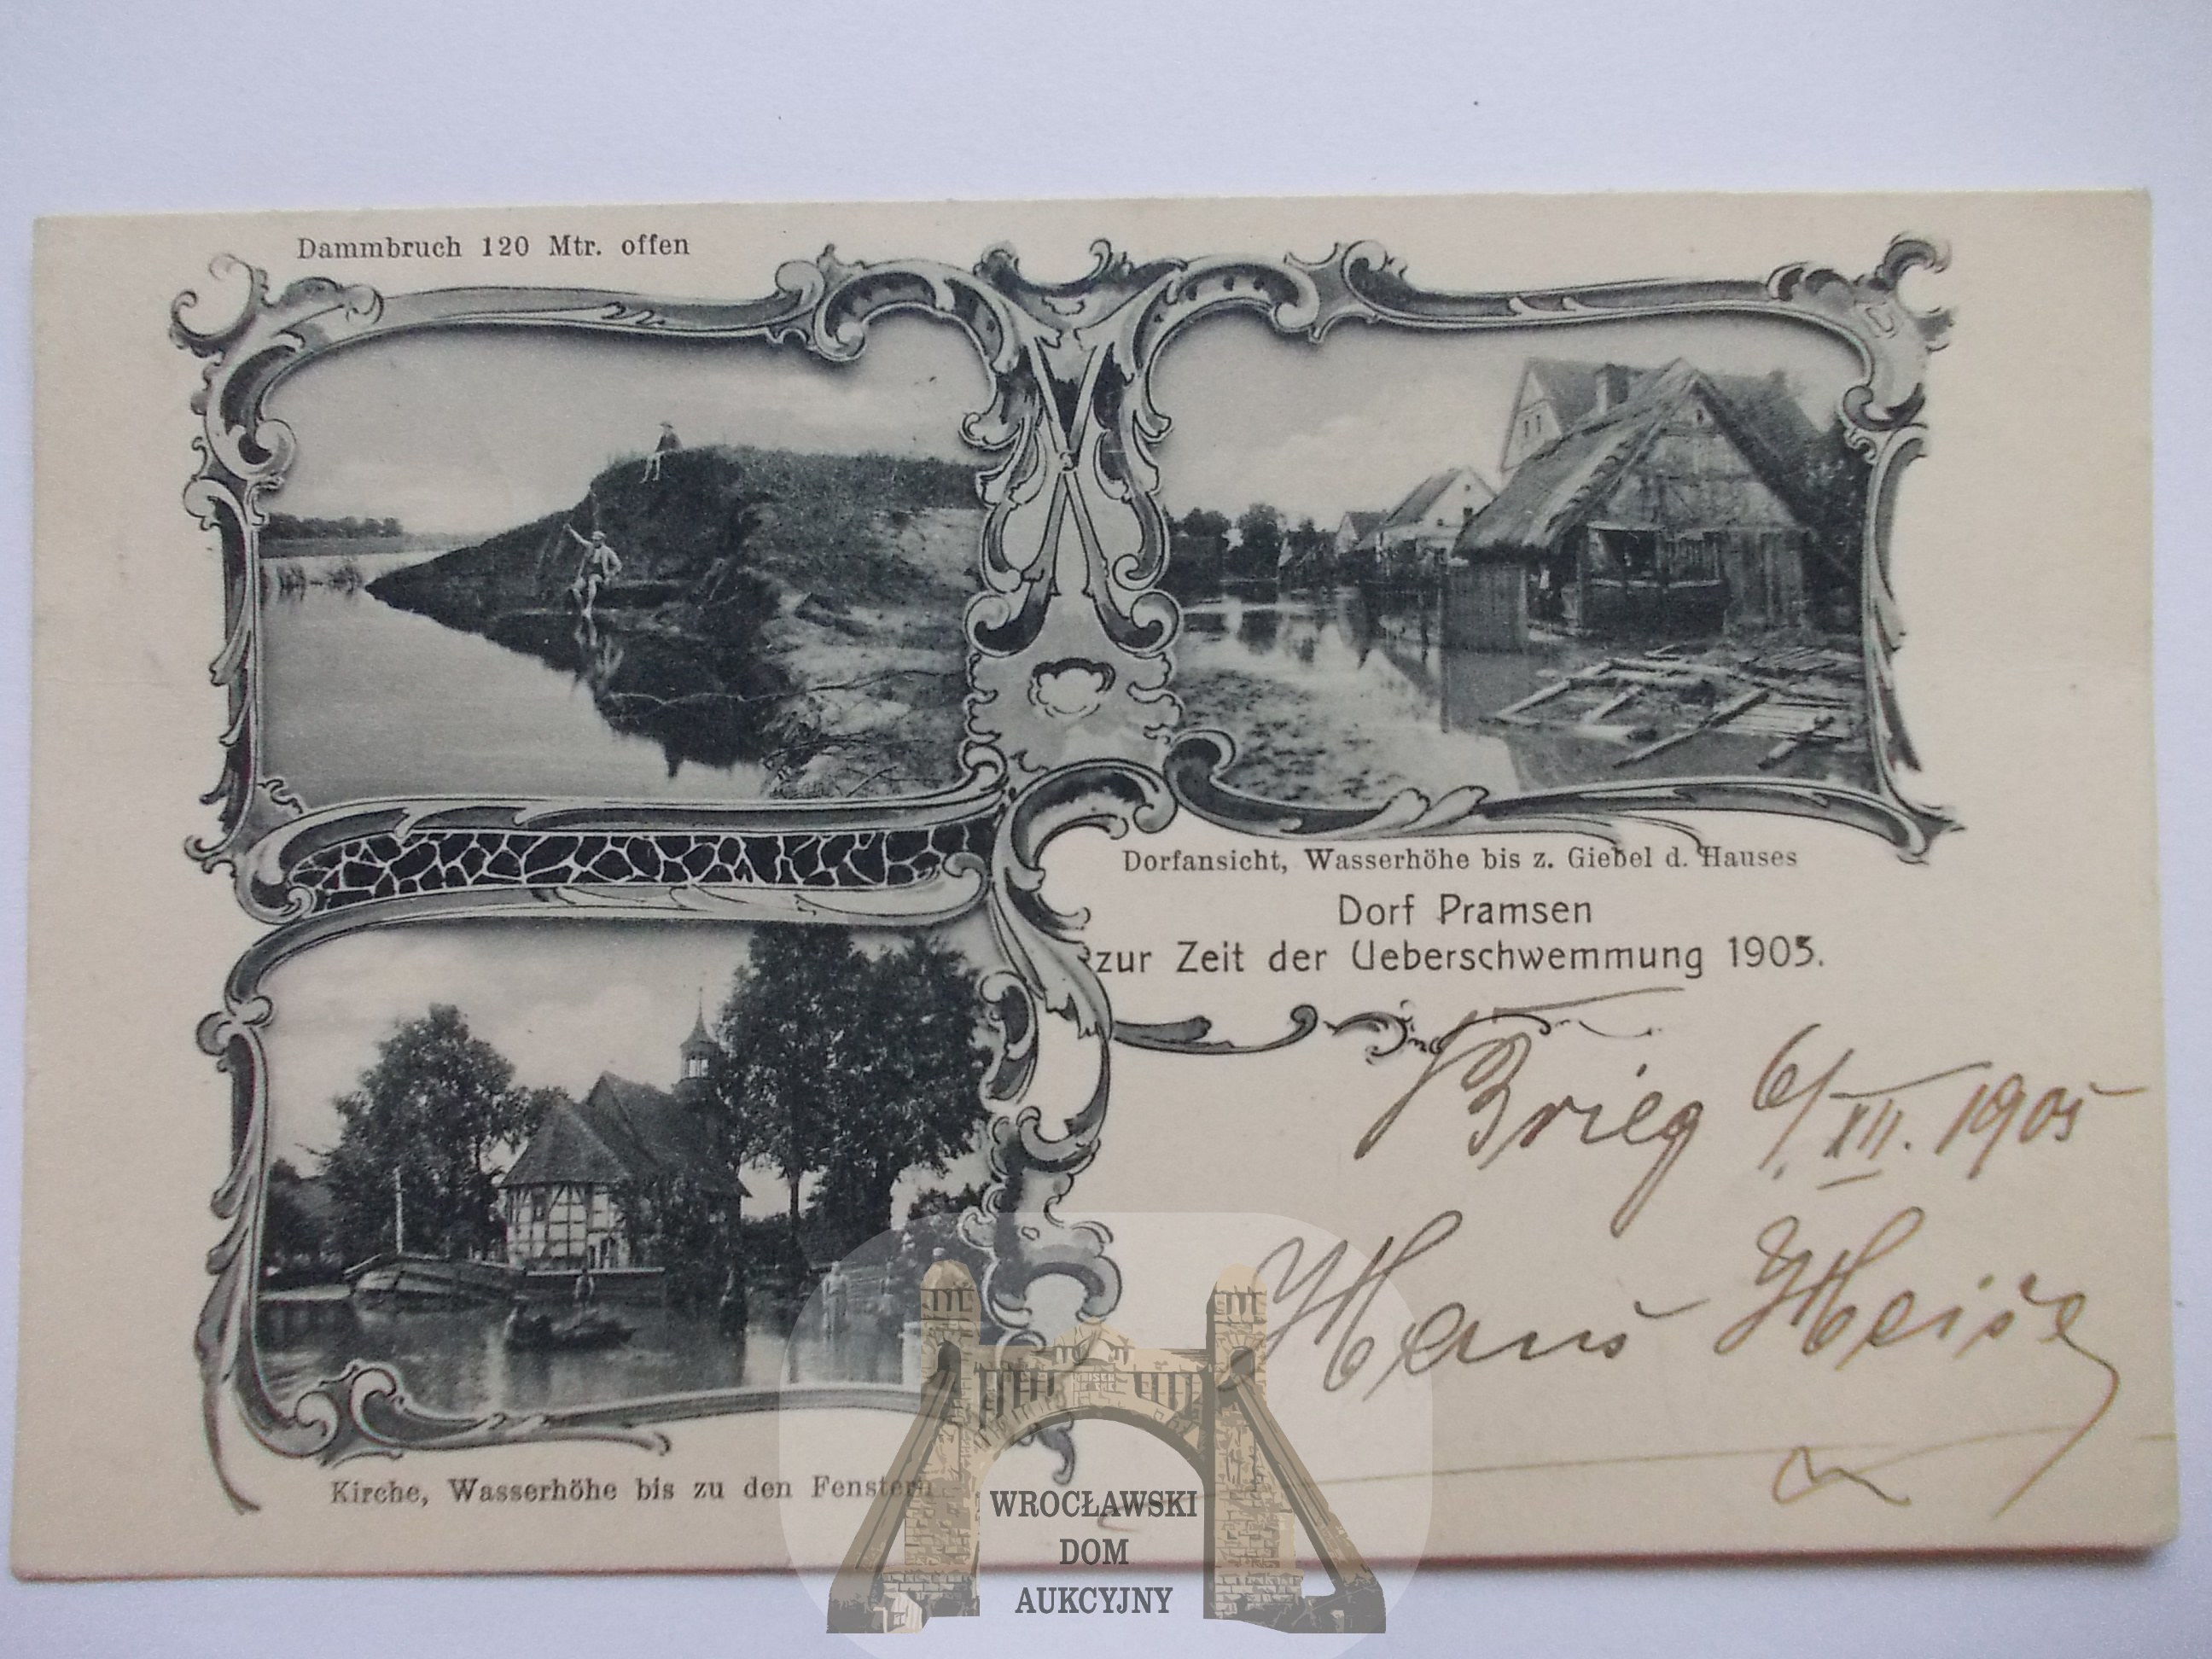 Dammbruch 120 Mtr. offen
Dorfansicht, Wasserhöhe bis z. Giebel d. Hauses
Dorf Pramsen
zur Zeit der Ueberschwemmung 1903.
Brieg 6/XII. 1905
Hans Heise
Kirche, Wasserhöhe bis zu den Fenstern
WROCŁAWSKI
DOM
AUKCYJNY